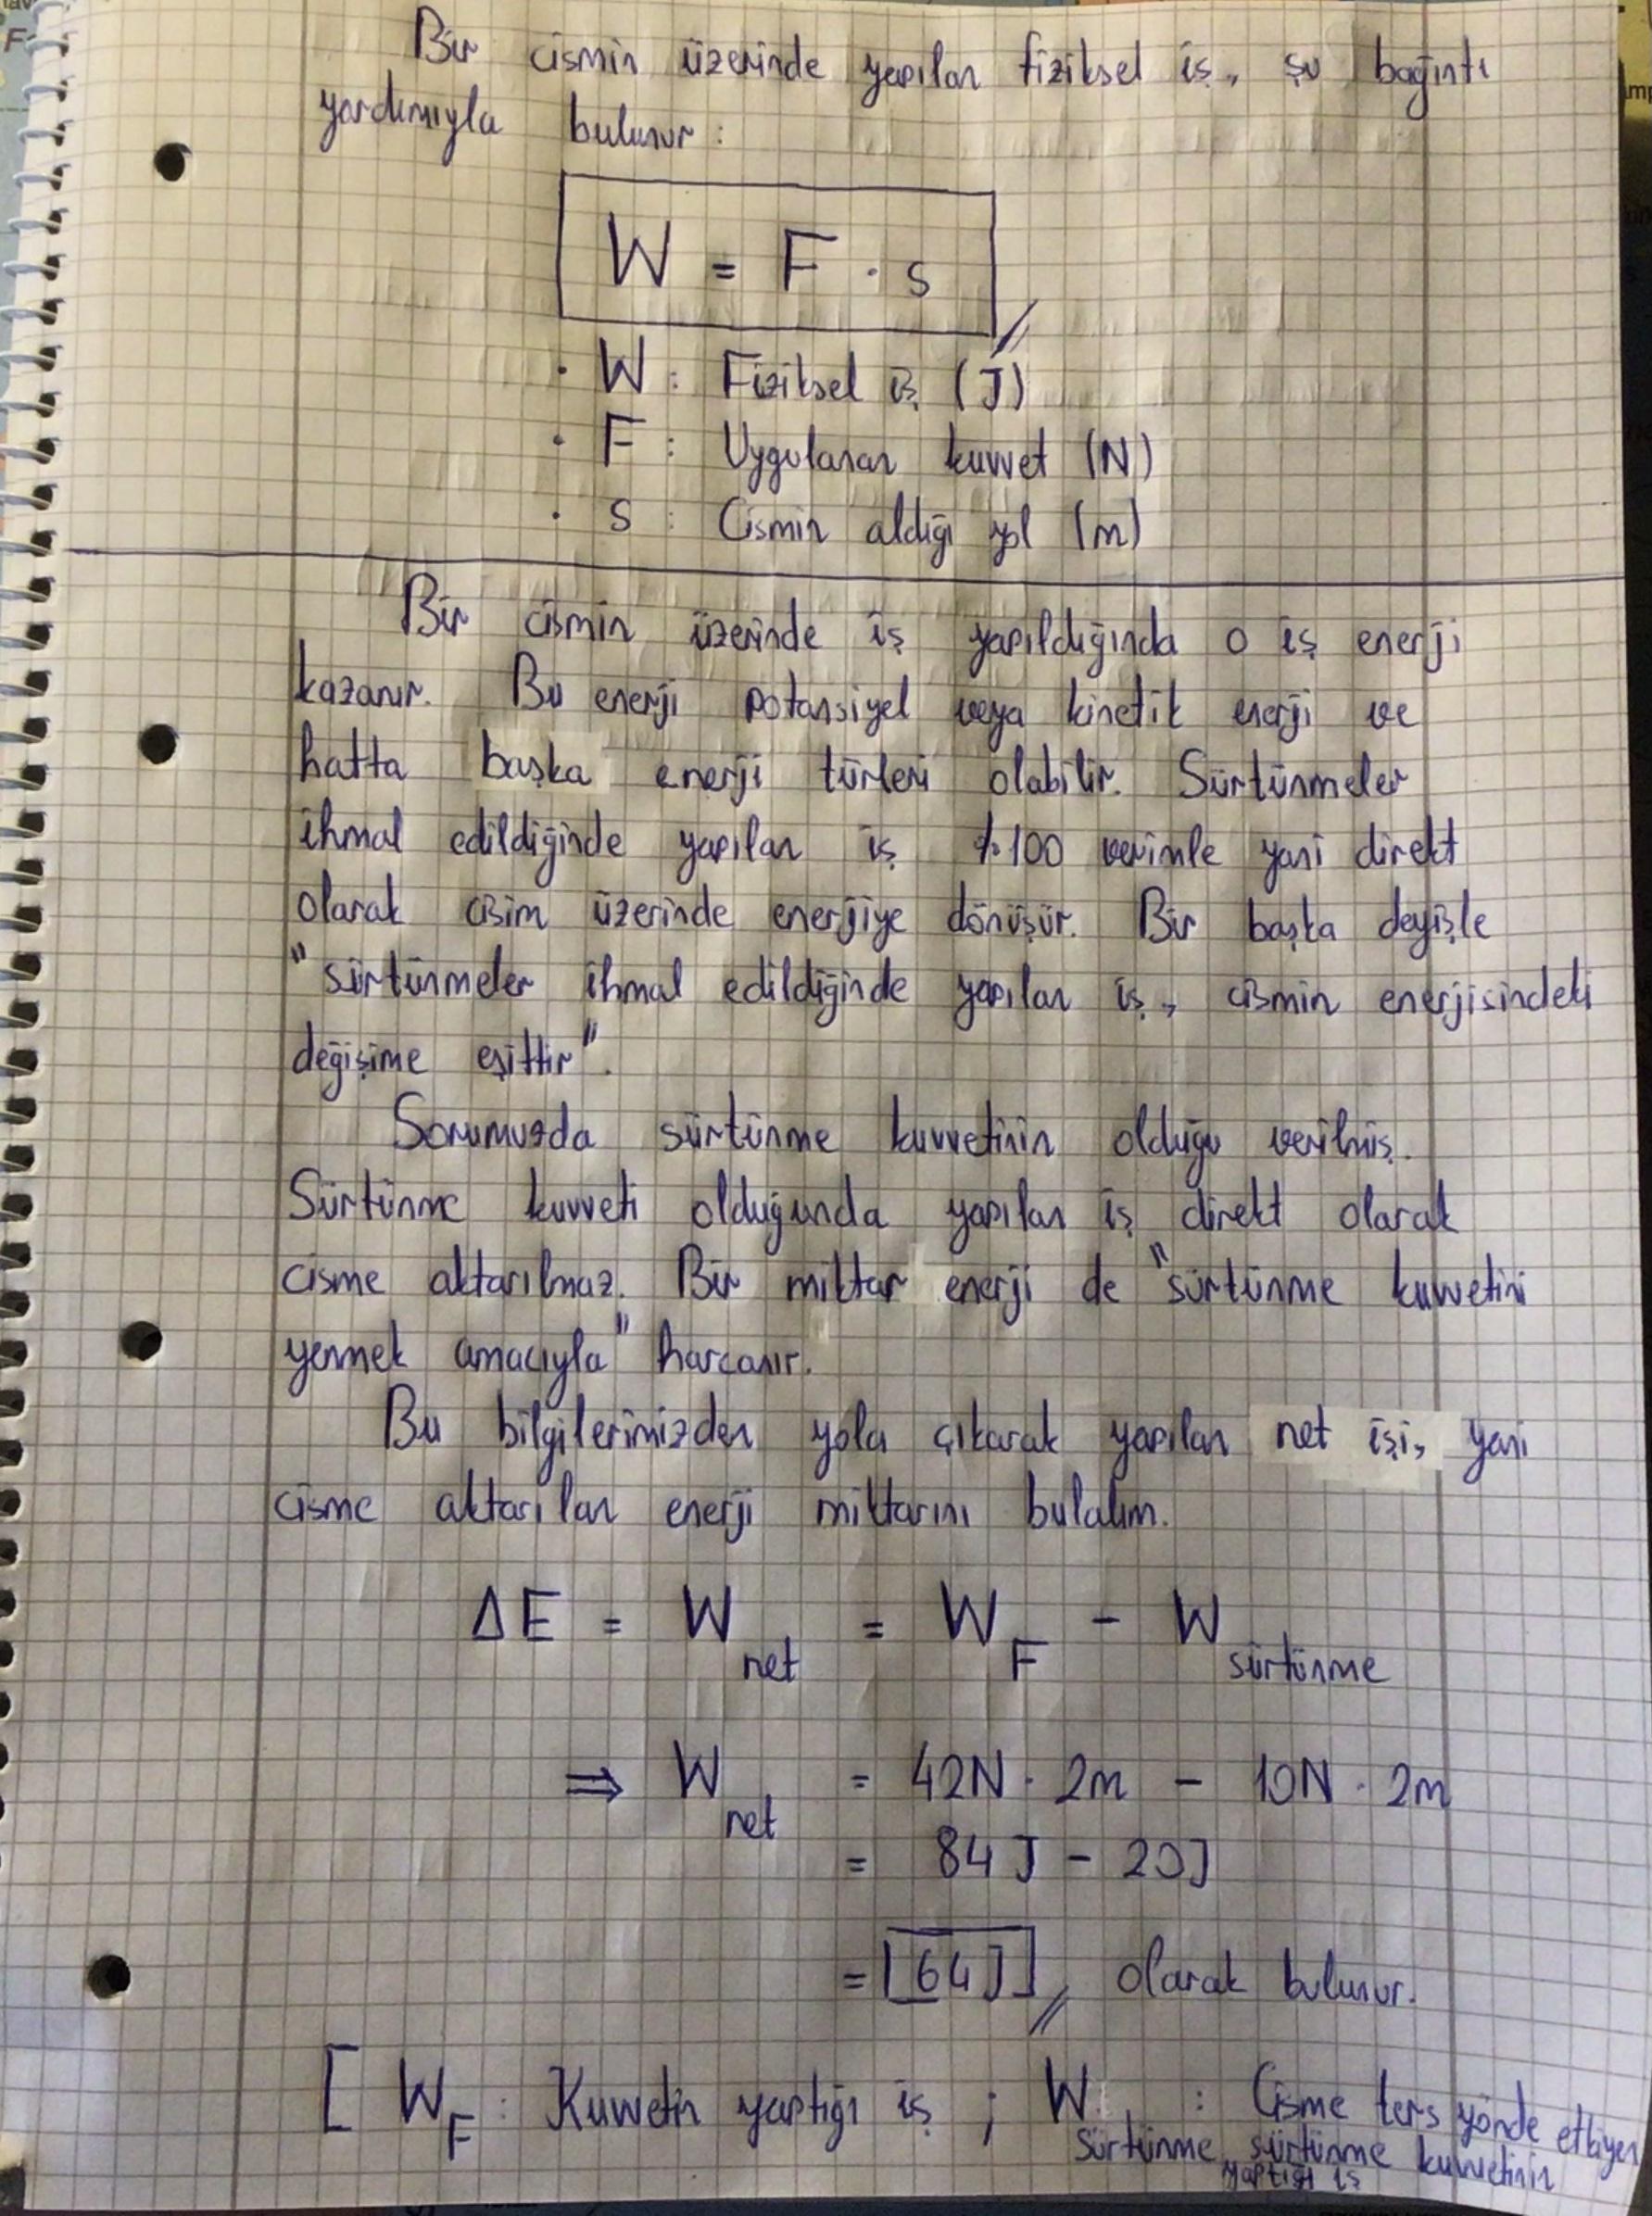 Bir cismin üzerinde yapılan fiziksel iş, şu bağıntı
yardımıyla bulunur:
W = F · s
· W : Fiziksel iş (J)
· F : Uygulanan kuvvet (N)
· s : Cismin aldığı yol (m)
Bir cismin üzerinde iş yapıldığında o iş enerji
kazanır. Bu enerji potansiyel veya kinetik enerji ve
hatta başka enerji türleri olabilir. Sürtünmeler
ihmal edildiğinde yapılan iş %100 verimle yani direkt
olarak cisim üzerinde enerjiye dönüşür. Bir başka deyişle
"sürtünmeler ihmal edildiğinde yapılan iş, cismin enerjisindeki
değişime eşittir".
Sorumuzda sürtünme kuvvetinin olduğu verilmiş.
Sürtünme kuvveti olduğunda yapılan iş direkt olarak
cisme aktarılmaz. Bir miktar enerji de "sürtünme kuvvetini
yenmek amacıyla" harcanır.
Bu bilgilerimizden yola çıkarak yapılan net işi, yani
cisme aktarılan enerji miktarını bulalım.
ΔE = W net = W F - W sürtünme
⇒ W net = 42N · 2m - 10N · 2m
= 84 J - 20J
= 64 J olarak bulunur.
[ W F : Kuvvetin yaptığı iş ; W sürtünme : Cisme ters yönde etkiyen
sürtünme kuvvetinin
yaptığı iş